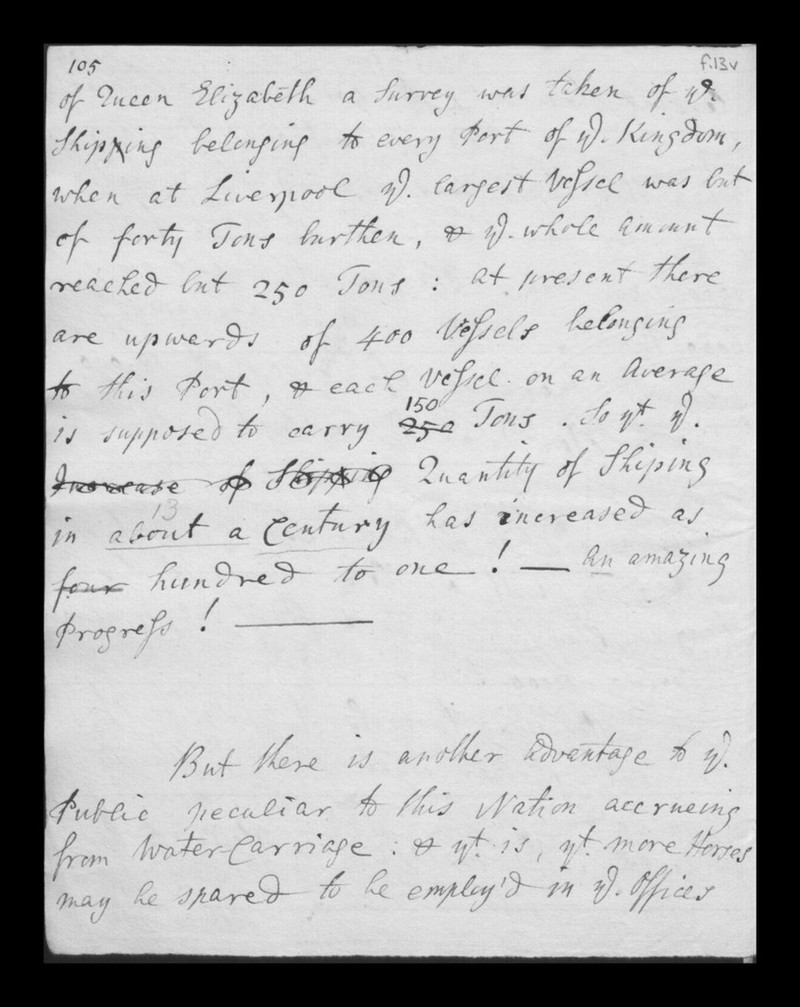 105
f.13v
of Queen Elizabeth a Survey was taken of ye.
Shipping belonging to every Port of ye. Kingdom,
when at Liverpool ye. largest Vessel was but
of forty Tons burthen, & ye. whole amount
reached but 250 Tons : at present there
are upwards of 400 Vessels belonging
to this Port, & each Vessel on an Average
150
is supposed to carry 250 Tons. So yt. ye.
Increase of Shipping Quantity of Shiping
13
in about a Century has increased as
four hundred to one ! — An amazing
Progress ! —
But there is another Advantage to ye.
Public peculiar to this Nation accrueing
from Water Carriage : & yt. is, yt. more Horses
may be spared to be employ'd in ye. Offices